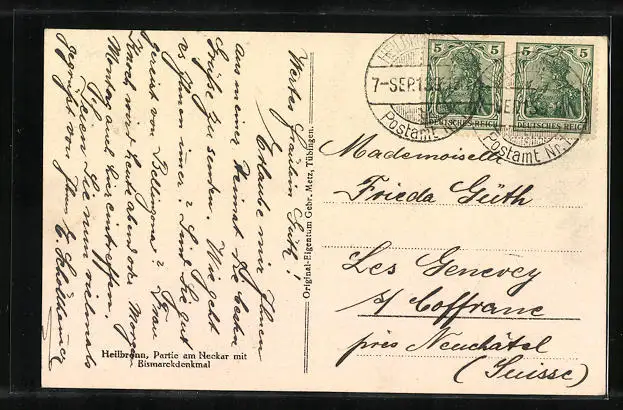 Wertes Fräulein Güth!
Erlaube mir Ihnen
aus meiner Heimat die besten
Grüße zu senden. Wie geht
es Ihnen immer? Sind Sie gut
gereist von Bellingona? Frau
Knoch wird heute abend oder Morgen
Montag auch hier eintreffen.
Seien Sie nun vielmals
gegrüßt von Ihrem
Heilbronn, Partie am Neckar mit
Bismarckdenkmal
Original-Eigentum Gebr. Metz, Tübingen.
HEILBRONN
7-SEP.13
Postamt Nr. 1
Postamt Nr. 1
5 5
DEUTSCHES REICH
5 5
DEUTSCHES REICH
Mademoiselle
Frieda Güth
Les Genevey
s/ Coffrane
près Neuchâtel
(Suisse)